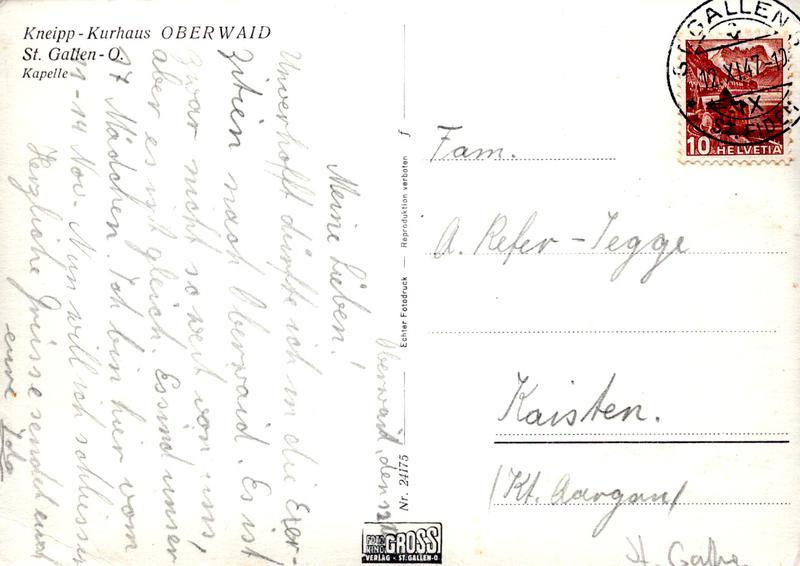 Kneipp-Kurhaus OBERWAID
St. Gallen-O.
Kapelle
Oberwaid, den 12.
Meine Lieben!
Unverhofft durfte ich in die Exer-
zitien nach Oberwaid. Es ist
zwar nicht so weit von uns,
aber es ist gleich. Es sind unser
17 Mädchen. Ich bin hier vom
11-14 Nov. Nun will ich schliessen
Herzliche Grüsse sendet euch
eure Ida
Echter Fotodruck — Reproduktion verboten
Nr. 24175
FOTO KINO GROSS
VERLAG - ST. GALLEN-O
ST. GALLEN
12. XI. 47
ST. FIDEN
10 HELVETIA
Fam.
A. Refer-Tegge
Kaisten.
(Kt. Aargau)
St.